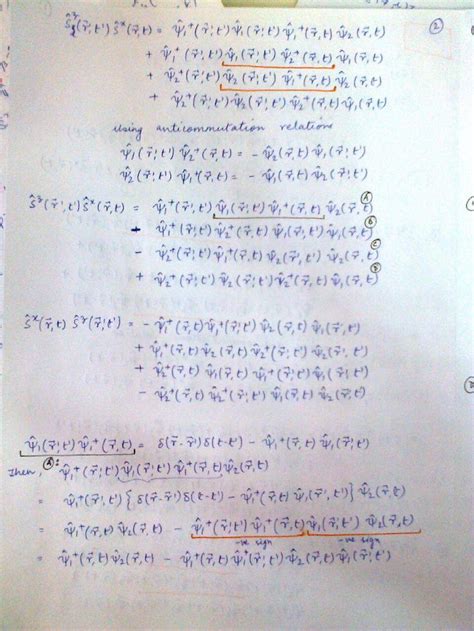 ②
Ŝ^z(r⃗,'t') Ŝ^x(r⃗,t) = ψ̂₁⁺(r⃗,'t') ψ̂₁(r⃗,'t') ψ̂₁⁺(r⃗,t) ψ̂₂(r⃗,t)
+ ψ̂₁⁺(r⃗,'t') ψ̂₁(r⃗,'t') ψ̂₂⁺(r⃗,t) ψ̂₁(r⃗,t)
+ ψ̂₂⁺(r⃗,'t') ψ̂₂(r⃗,'t') ψ̂₁⁺(r⃗,t) ψ̂₂(r⃗,t)
+ ψ̂₂⁺(r⃗,'t') ψ̂₂(r⃗,'t') ψ̂₂⁺(r⃗,t) ψ̂₁(r⃗,t)
using anticommutation relations
ψ̂₁(r⃗,'t') ψ̂₂⁺(r⃗,t) = - ψ̂₂⁺(r⃗,t) ψ̂₁(r⃗,'t')
ψ̂₂(r⃗,'t') ψ̂₁⁺(r⃗,t) = - ψ̂₁⁺(r⃗,t) ψ̂₂(r⃗,'t')
Ŝ^z(r⃗,'t') Ŝ^x(r⃗,t) = ψ̂₁⁺(r⃗,'t') ψ̂₁(r⃗,'t') ψ̂₁⁺(r⃗,t) ψ̂₂(r⃗,t) Ⓐ
- ψ̂₁⁺(r⃗,'t') ψ̂₂⁺(r⃗,t) ψ̂₁(r⃗,'t') ψ̂₁(r⃗,t) Ⓑ
- ψ̂₂⁺(r⃗,'t') ψ̂₁⁺(r⃗,t) ψ̂₂(r⃗,'t') ψ̂₂(r⃗,t) Ⓒ
+ ψ̂₂⁺(r⃗,'t') ψ̂₂(r⃗,'t') ψ̂₂⁺(r⃗,t) ψ̂₁(r⃗,t) Ⓓ
Ŝ^x(r⃗,t) Ŝ^z(r⃗,'t') = - ψ̂₁⁺(r⃗,t) ψ̂₁⁺(r⃗,'t') ψ̂₂(r⃗,t) ψ̂₁(r⃗,'t')
+ ψ̂₁⁺(r⃗,t) ψ̂₂(r⃗,t) ψ̂₂⁺(r⃗,'t') ψ̂₂(r⃗,'t')
+ ψ̂₂⁺(r⃗,t) ψ̂₁(r⃗,t) ψ̂₁⁺(r⃗,'t') ψ̂₁(r⃗,'t')
- ψ̂₂⁺(r⃗,t) ψ̂₂⁺(r⃗,'t') ψ̂₁(r⃗,t) ψ̂₂(r⃗,t)
ψ̂₁(r⃗,'t') ψ̂₁⁺(r⃗,t) = δ(r⃗-r⃗')δ(t-t') - ψ̂₁⁺(r⃗,t) ψ̂₁(r⃗,'t')
Then, Ⓐ: ψ̂₁⁺(r⃗,'t') ψ̂₁(r⃗,'t') ψ̂₁⁺(r⃗,t) ψ̂₂(r⃗,t)
= ψ̂₁⁺(r⃗,'t') { δ(r⃗-r⃗')δ(t-t') - ψ̂₁⁺(r⃗,t) ψ̂₁(r⃗,'t') } ψ̂₂(r⃗,t)
= ψ̂₁⁺(r⃗,t) ψ̂₂(r⃗,t) - ψ̂₁⁺(r⃗,'t') ψ̂₁⁺(r⃗,t) ψ̂₁(r⃗,'t') ψ̂₂(r⃗,t)
-ve sign -ve sign
= ψ̂₁⁺(r⃗,t) ψ̂₂(r⃗,t) - ψ̂₁⁺(r⃗,t) ψ̂₁⁺(r⃗,'t') ψ̂₂(r⃗,t) ψ̂₁(r⃗,'t')